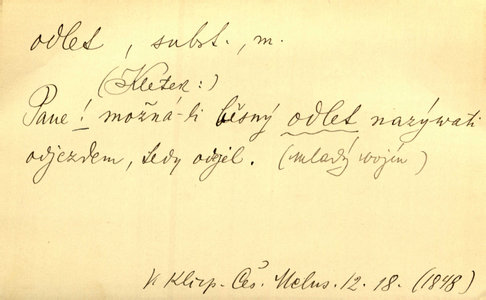 odlet, subst., m.
(Kletek:)
Pane! možná-li běsný odlet nazývati
odjezdem, tedy odjel. (mladý wojín)
V. Klicp. Čes. Melus. 12. 18. (1848)